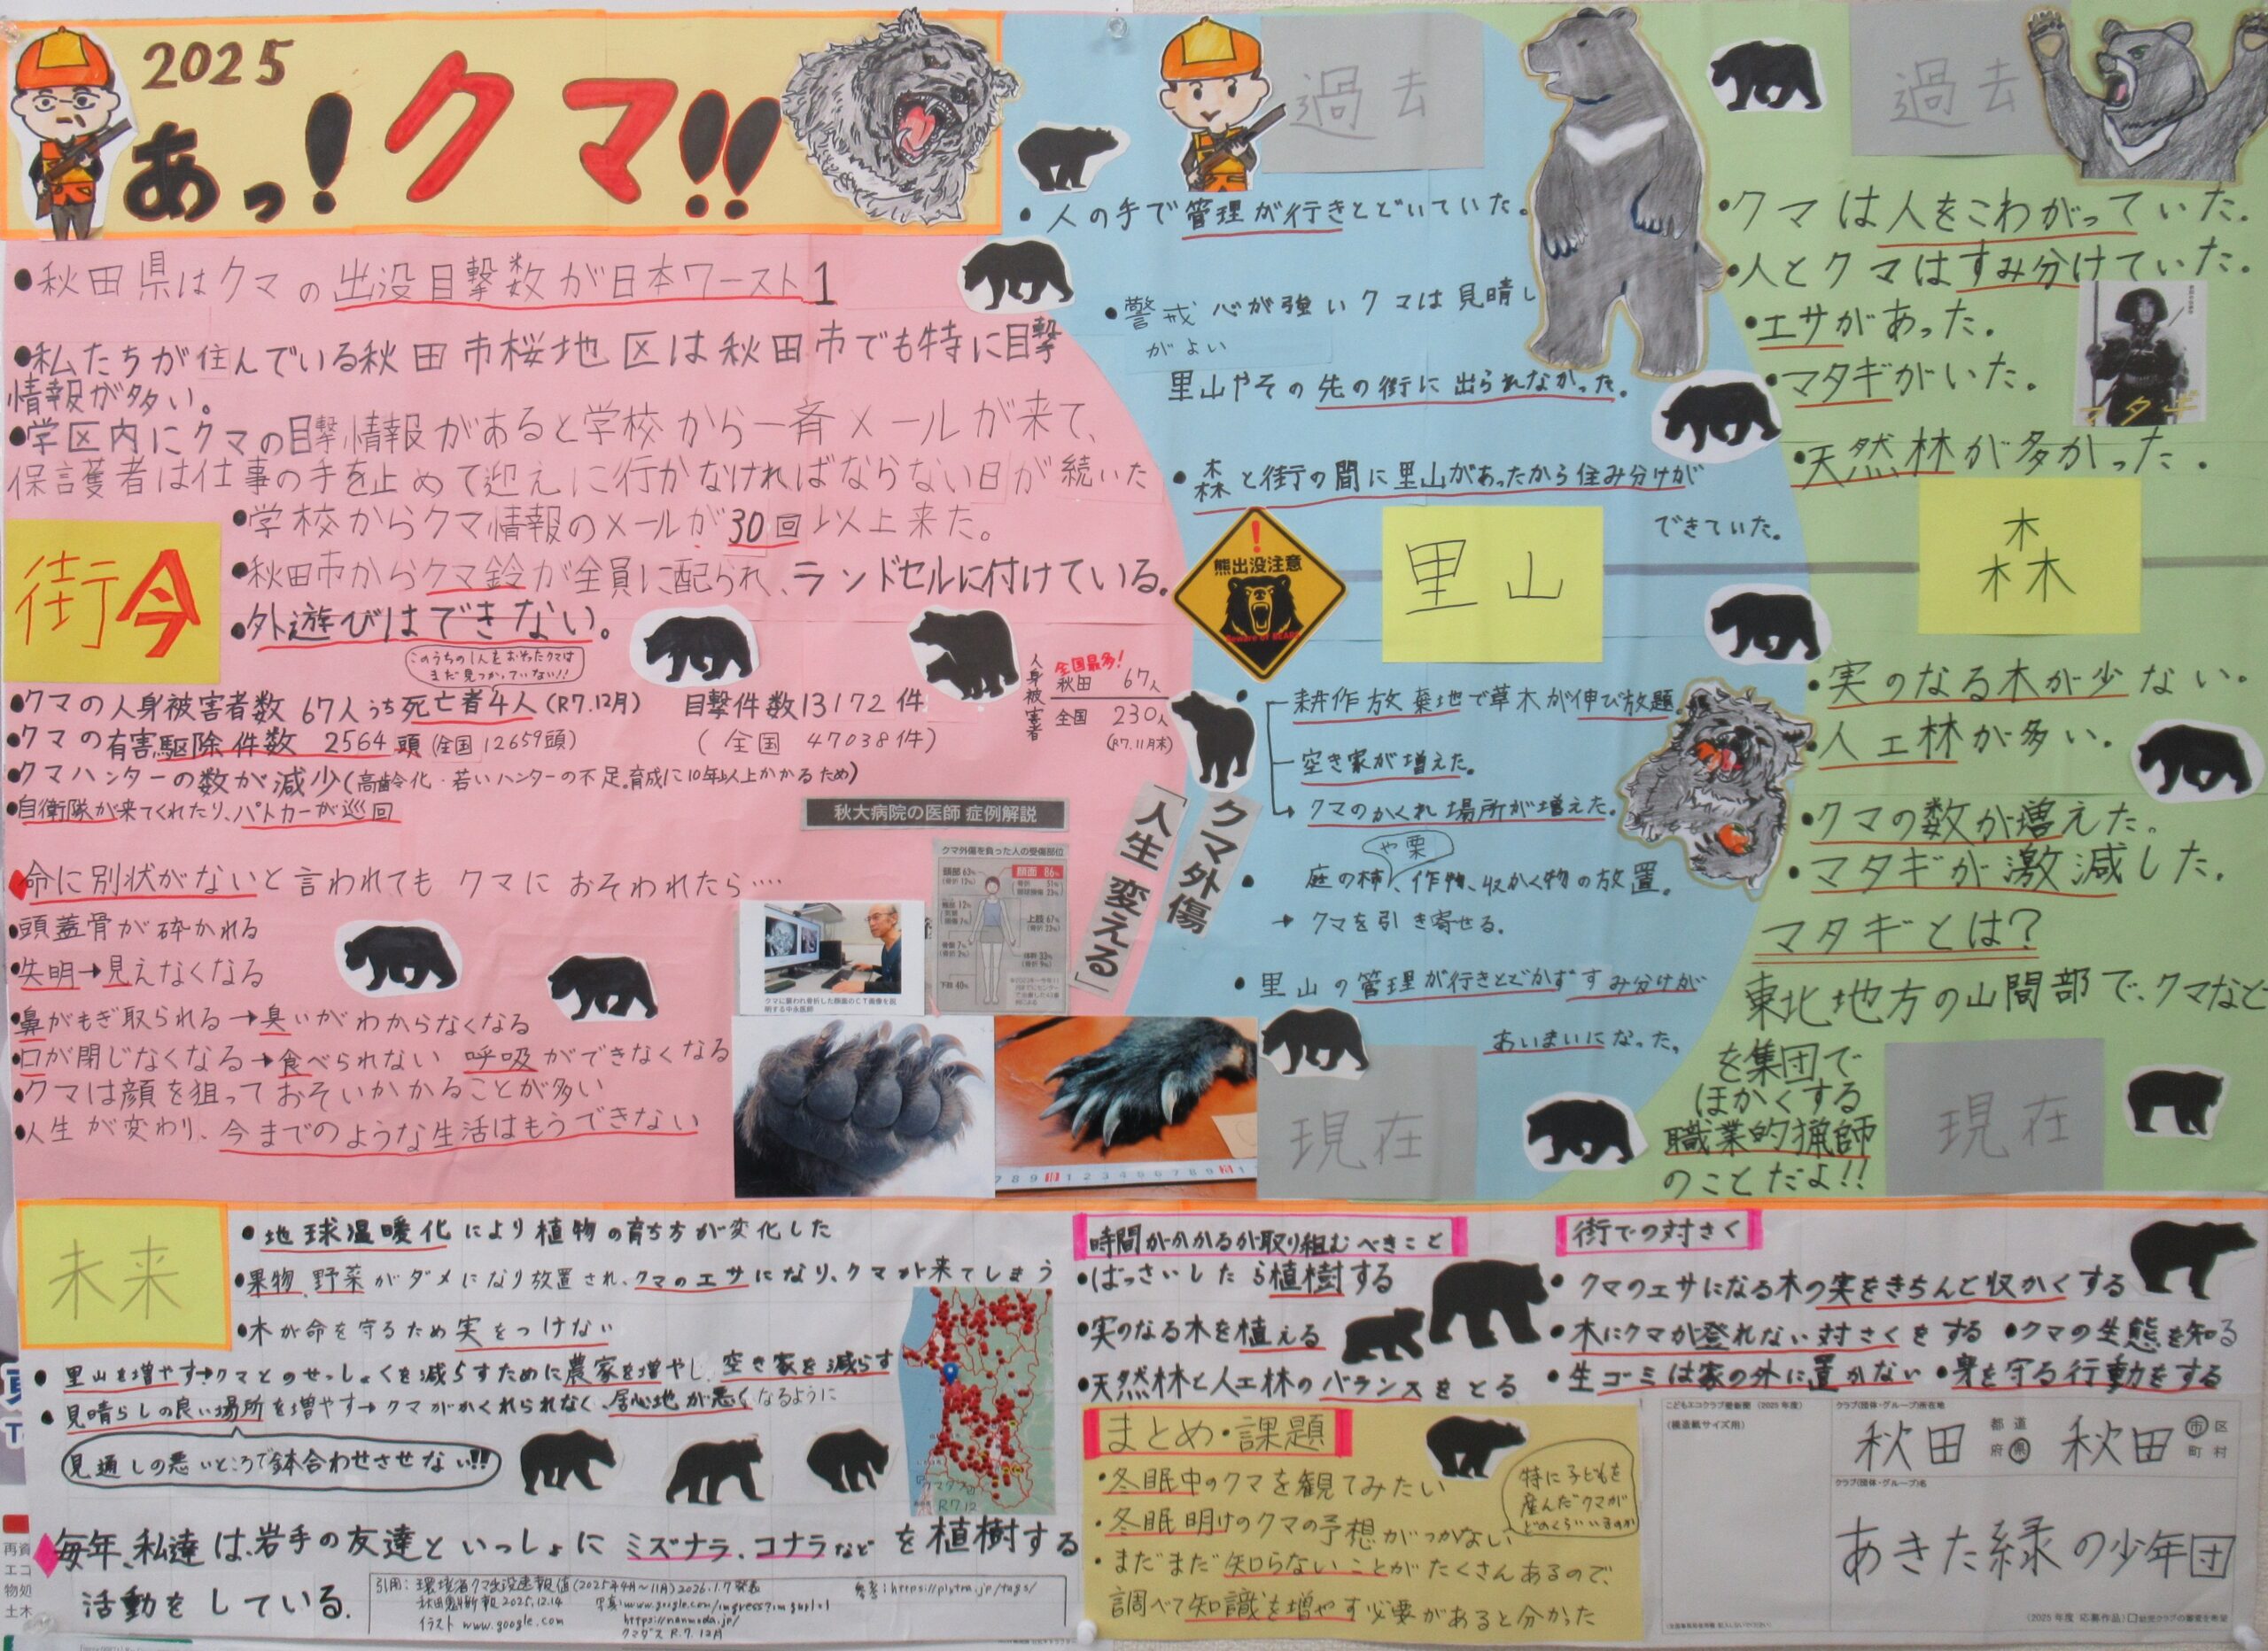 2025
あっ!クマ!!
●秋田県はクマの出没目撃数が日本ワースト1
●私たちが住んでいる秋田市桜地区は秋田市でも特に目撃
情報が多い。
●学区内にクマの目撃情報があると学校から一斉メールが来て、
保護者は仕事の手を止めて迎えに行かなければならない日が続いた
●学校からクマ情報のメールが30回以上来た。
●秋田市からクマ鈴が全員に配られ、ランドセルに付けている。
●外遊びはできない。
街今
このうちの1人をおそったクマは
まだ見つかっていない!!
●クマの人身被害者数 67人うち死亡者4人(R7.12月) 目撃件数13172件
●クマの有害駆除件数 2564頭(全国12659頭) (全国 47038件)
●クマハンターの数が減少(高齢化・若いハンターの不足。育成に10年以上かかるため)
●自衛隊が来てくれたり、パトカーが巡回
人身被害者
全国最多!
秋田 67人
全国 230人
(R7.11月末)
秋大病院の医師 症例解説
クマ外傷
「人生変える」
クマ外傷を負った人の受傷部位
顔面 86%
上肢 67%
下肢 40%
クマに襲われ骨折した顔面のCT画像を説
明する中永医師
◆命に別状がないと言われても クマに おそわれたら‥‥
●頭蓋骨が砕かれる
●失明→見えなくなる
●鼻がもぎ取られる→臭いがわからなくなる
●口が閉じなくなる→食べられない 呼吸ができなくなる
●クマは顔を狙っておそいかかることが多い
●人生が変わり、今までのような生活はもうできない
過去
●人の手で管理が行きとどいていた。
●警戒心が強いクマは見晴し
がよい
里山やその先の街に出られなかった。
●森と街の間に里山があったから住み分けが
できていた。
!
熊出没注意
Beware of BEARS
里山
●耕作放棄地で草木が伸び放題。
空き家が増えた。
→クマのかくれ場所が増えた。
や栗
●庭の柿、作物、収かく物の放置。
→クマを引き寄せる。
●里山の管理が行きとどかずすみ分けが
あいまいになった。
現在
過去
●クマは人をこわがっていた。
●人とクマはすみ分けていた。
●エサがあった。
●マタギがいた。
マタギ
●天然林が多かった。
森
●実のなる木が少ない。
●人工林が多い。
●クマの数が増えた。
●マタギが激減した。
マタギとは?
東北地方の山間部で、クマなど
を集団で
ほかくする
職業的猟師
のことだよ!!
現在
未来
●地球温暖化により植物の育ち方が変化した
●果物、野菜がダメになり放置され、クマのエサになり、クマが来てしまう
●木が命を守るため実をつけない
●里山を増やす→クマとのせっしょくを減らすために農家を増やし、空き家を減らす
●見晴らしの良い場所を増やす→クマがかくれられなく、居心地が悪くなるように
見通しの悪いところで鉢合わせさせない!!
クマダス
R7.12
◆毎年、私達は、岩手の友達といっしょに ミズナラ、コナラなどを植樹する
活動をしている。
引用:環境省クマ出没速報値(2025年4月~11月)2026.1.7発表
秋田魁新報 2025.12.14
イラスト www.google.com
クマダス R.7.12月
時間がかかるが取り組むべきこと
●ばっさいしたら植樹する
●実のなる木を植える
●天然林と人工林のバランスをとる
街での対さく
●クマのエサになる木の実をきちんと収かくする
●木にクマが登れない対さくをする ●クマの生態を知る
●生ゴミは家の外に置かない ●身を守る行動をする
まとめ・課題
・冬眠中のクマを観てみたい
・冬眠明けのクマの予想がつかない
特に子どもを
産んだクマが
どのくらいいるのか
・まだまだ知らないことがたくさんあるので、
調べて知識を増やす必要があると分かった
こどもエコクラブ壁新聞(2025年度)
(模造紙サイズ用)
クラブ(団体・グループ)所在地
秋田 都道府県 秋田 市区町村
クラブ(団体・グループ)名
あきた緑の少年団
(2025年度 応募作品)